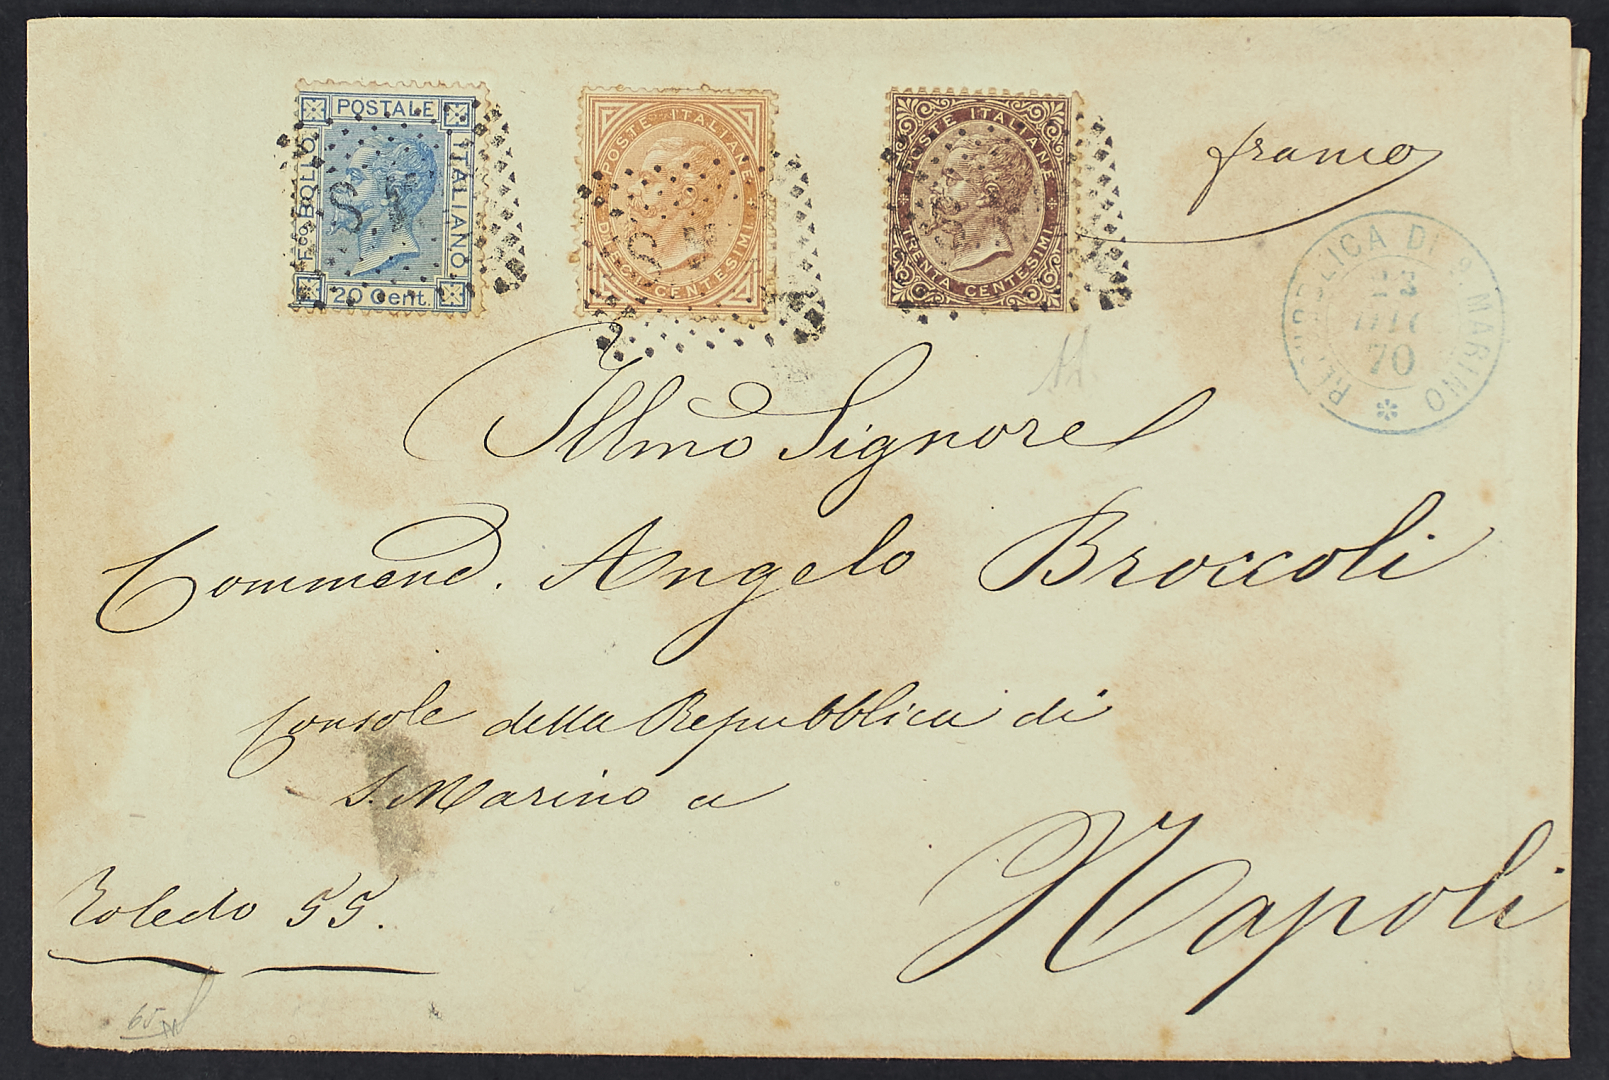 POSTALE
F.co BOLLO
ITALIANO
20 Cent.
POSTE ITALIANE
DIECI CENTESIMI
POSTE ITALIANE
TRENTA CENTESIMI
franco
REPUBBLICA DI S. MARINO
70
Illmo Signore
Commend. Angelo Broccoli
Console della Repubblica di
S. Marino a
Napoli
Toledo 55.